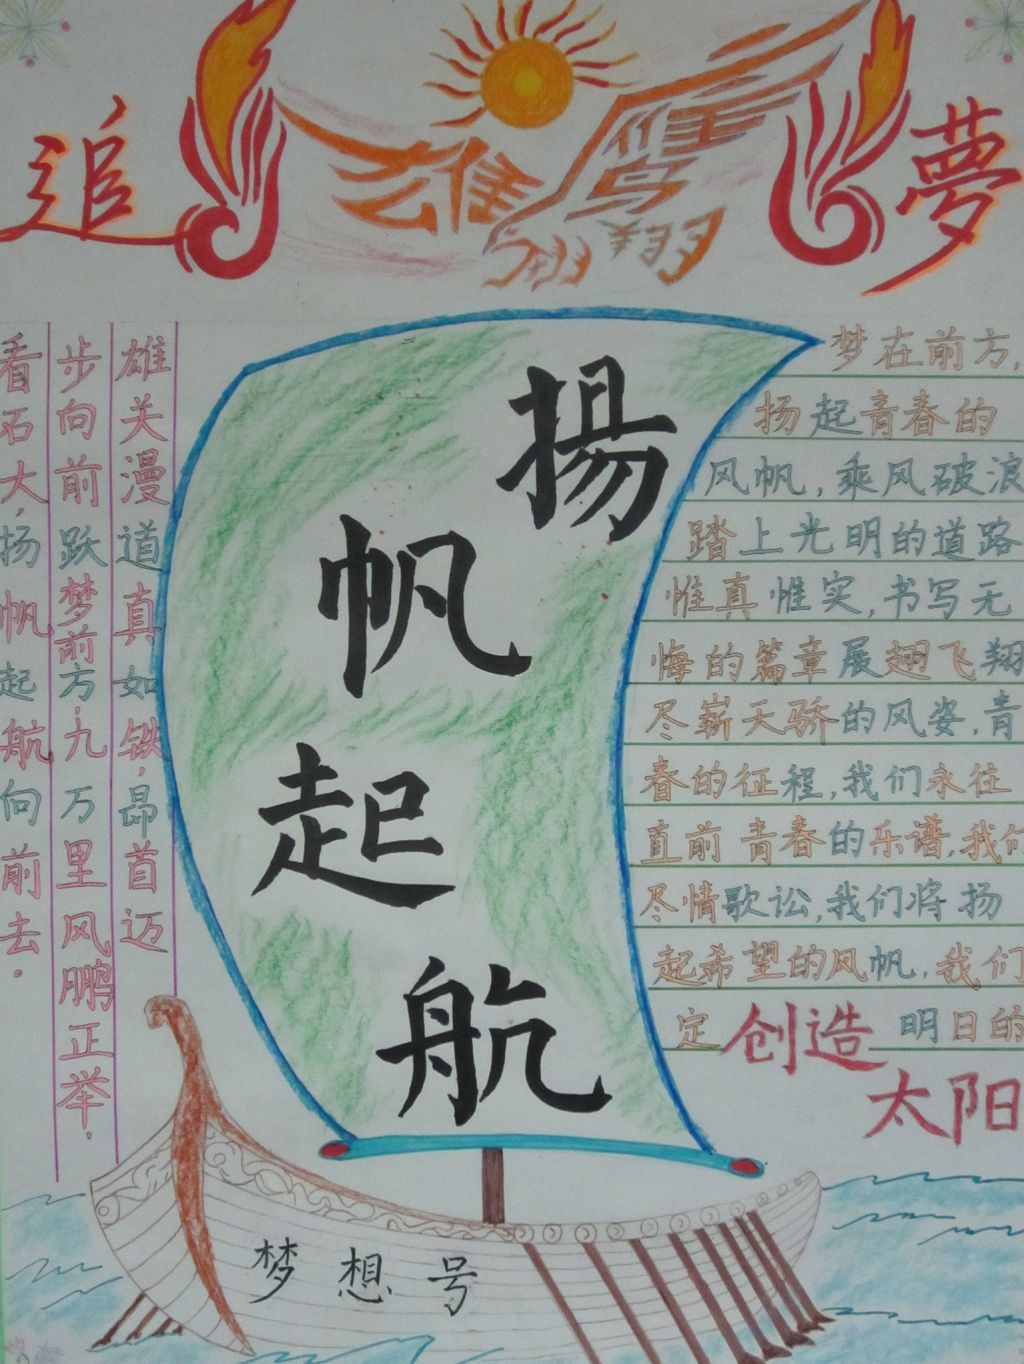 追 雄鹰翱翔 夢
揚帆起航
雄关漫道真如铁,昂首迈
步向前跃梦前方,九万里风鹏正举.
看石大,扬帆起航向前去.
梦在前方,
扬起青春的
风帆,乘风破浪
踏上光明的道路
惟真惟实,书写无
悔的篇章展翅飞翔
尽崭天骄的风姿,青
春的征程,我们永往
直前青春的乐谱,我们
尽情歌讼,我们将扬
起希望的风帆,我们
定创造明日的
太阳
梦想号